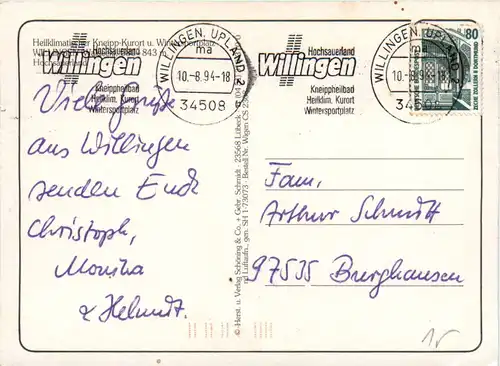 Heilklimatischer Kneipp-Kurort u. Wintersportplatz
843 m
Hochsauerland
Hochsauerland
Willingen
Kneippheilbad
Heilklim. Kurort
Wintersportplatz
WILLINGEN, UPLAND 2
ma
10.-8.94-18
34508
Hochsauerland
Willingen
Kneippheilbad
Heilklim. Kurort
Wintersportplatz
WILLINGEN, UPLAND 2
ma
10.-8.94-18
34508
80
DEUTSCHE BUNDESPOST
Viele Grüße
aus Willingen
senden Euch
Christoph,
Monika
& Helmut.
© Herst. u. Verlag Schöning & Co. + Gebr. Schmidt - 23568 Lübeck
Luftaufn., gen. SH 1-73073 - Bestell Nr. Wigen CS
Fam.
Arthur Schmidt
97535 Burghausen